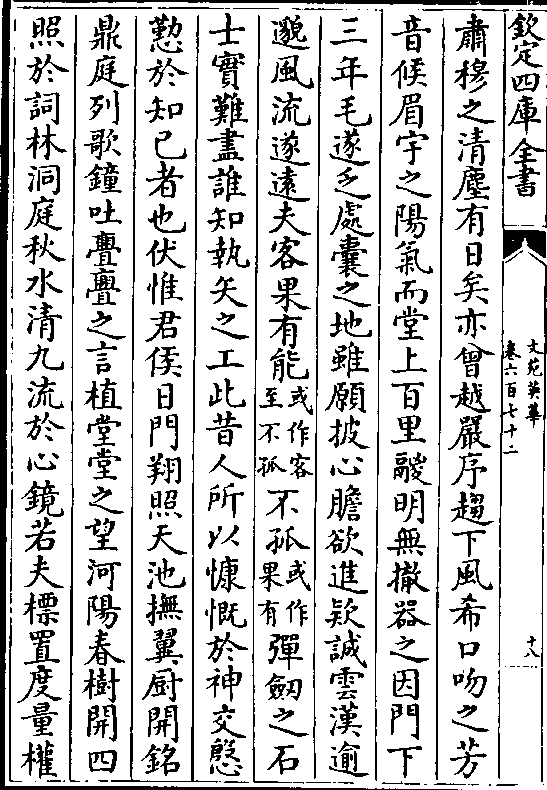 欽定四庫全書
文苑英華
卷六百七十二
十八
肅穆之清塵有日矣亦曾越嚴序趨下風希口吻之芳
音候眉宇之陽氣而堂上百里鬷明無撤器之因門下
三年毛遂乏處囊之地雖願披心膽欲進欵誠雲漢逾
邈風流遂遠夫客果有能或作客至不孤不孤或作果有彈劒之石
士寶難盡誰知執矢之工此昔人所以慷慨於神交慇
懃於知己者也伏惟君侯日門翔照天池撫翼厨開銘
鼎庭列歌鐘吐亹亹之言植堂堂之望河陽春樹開四
照於詞林洞庭秋水清九流於心鏡若夫標置度量權